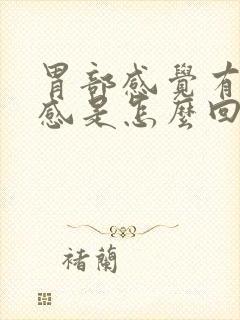 胃部感覺有
感是怎麼回
褚蘭